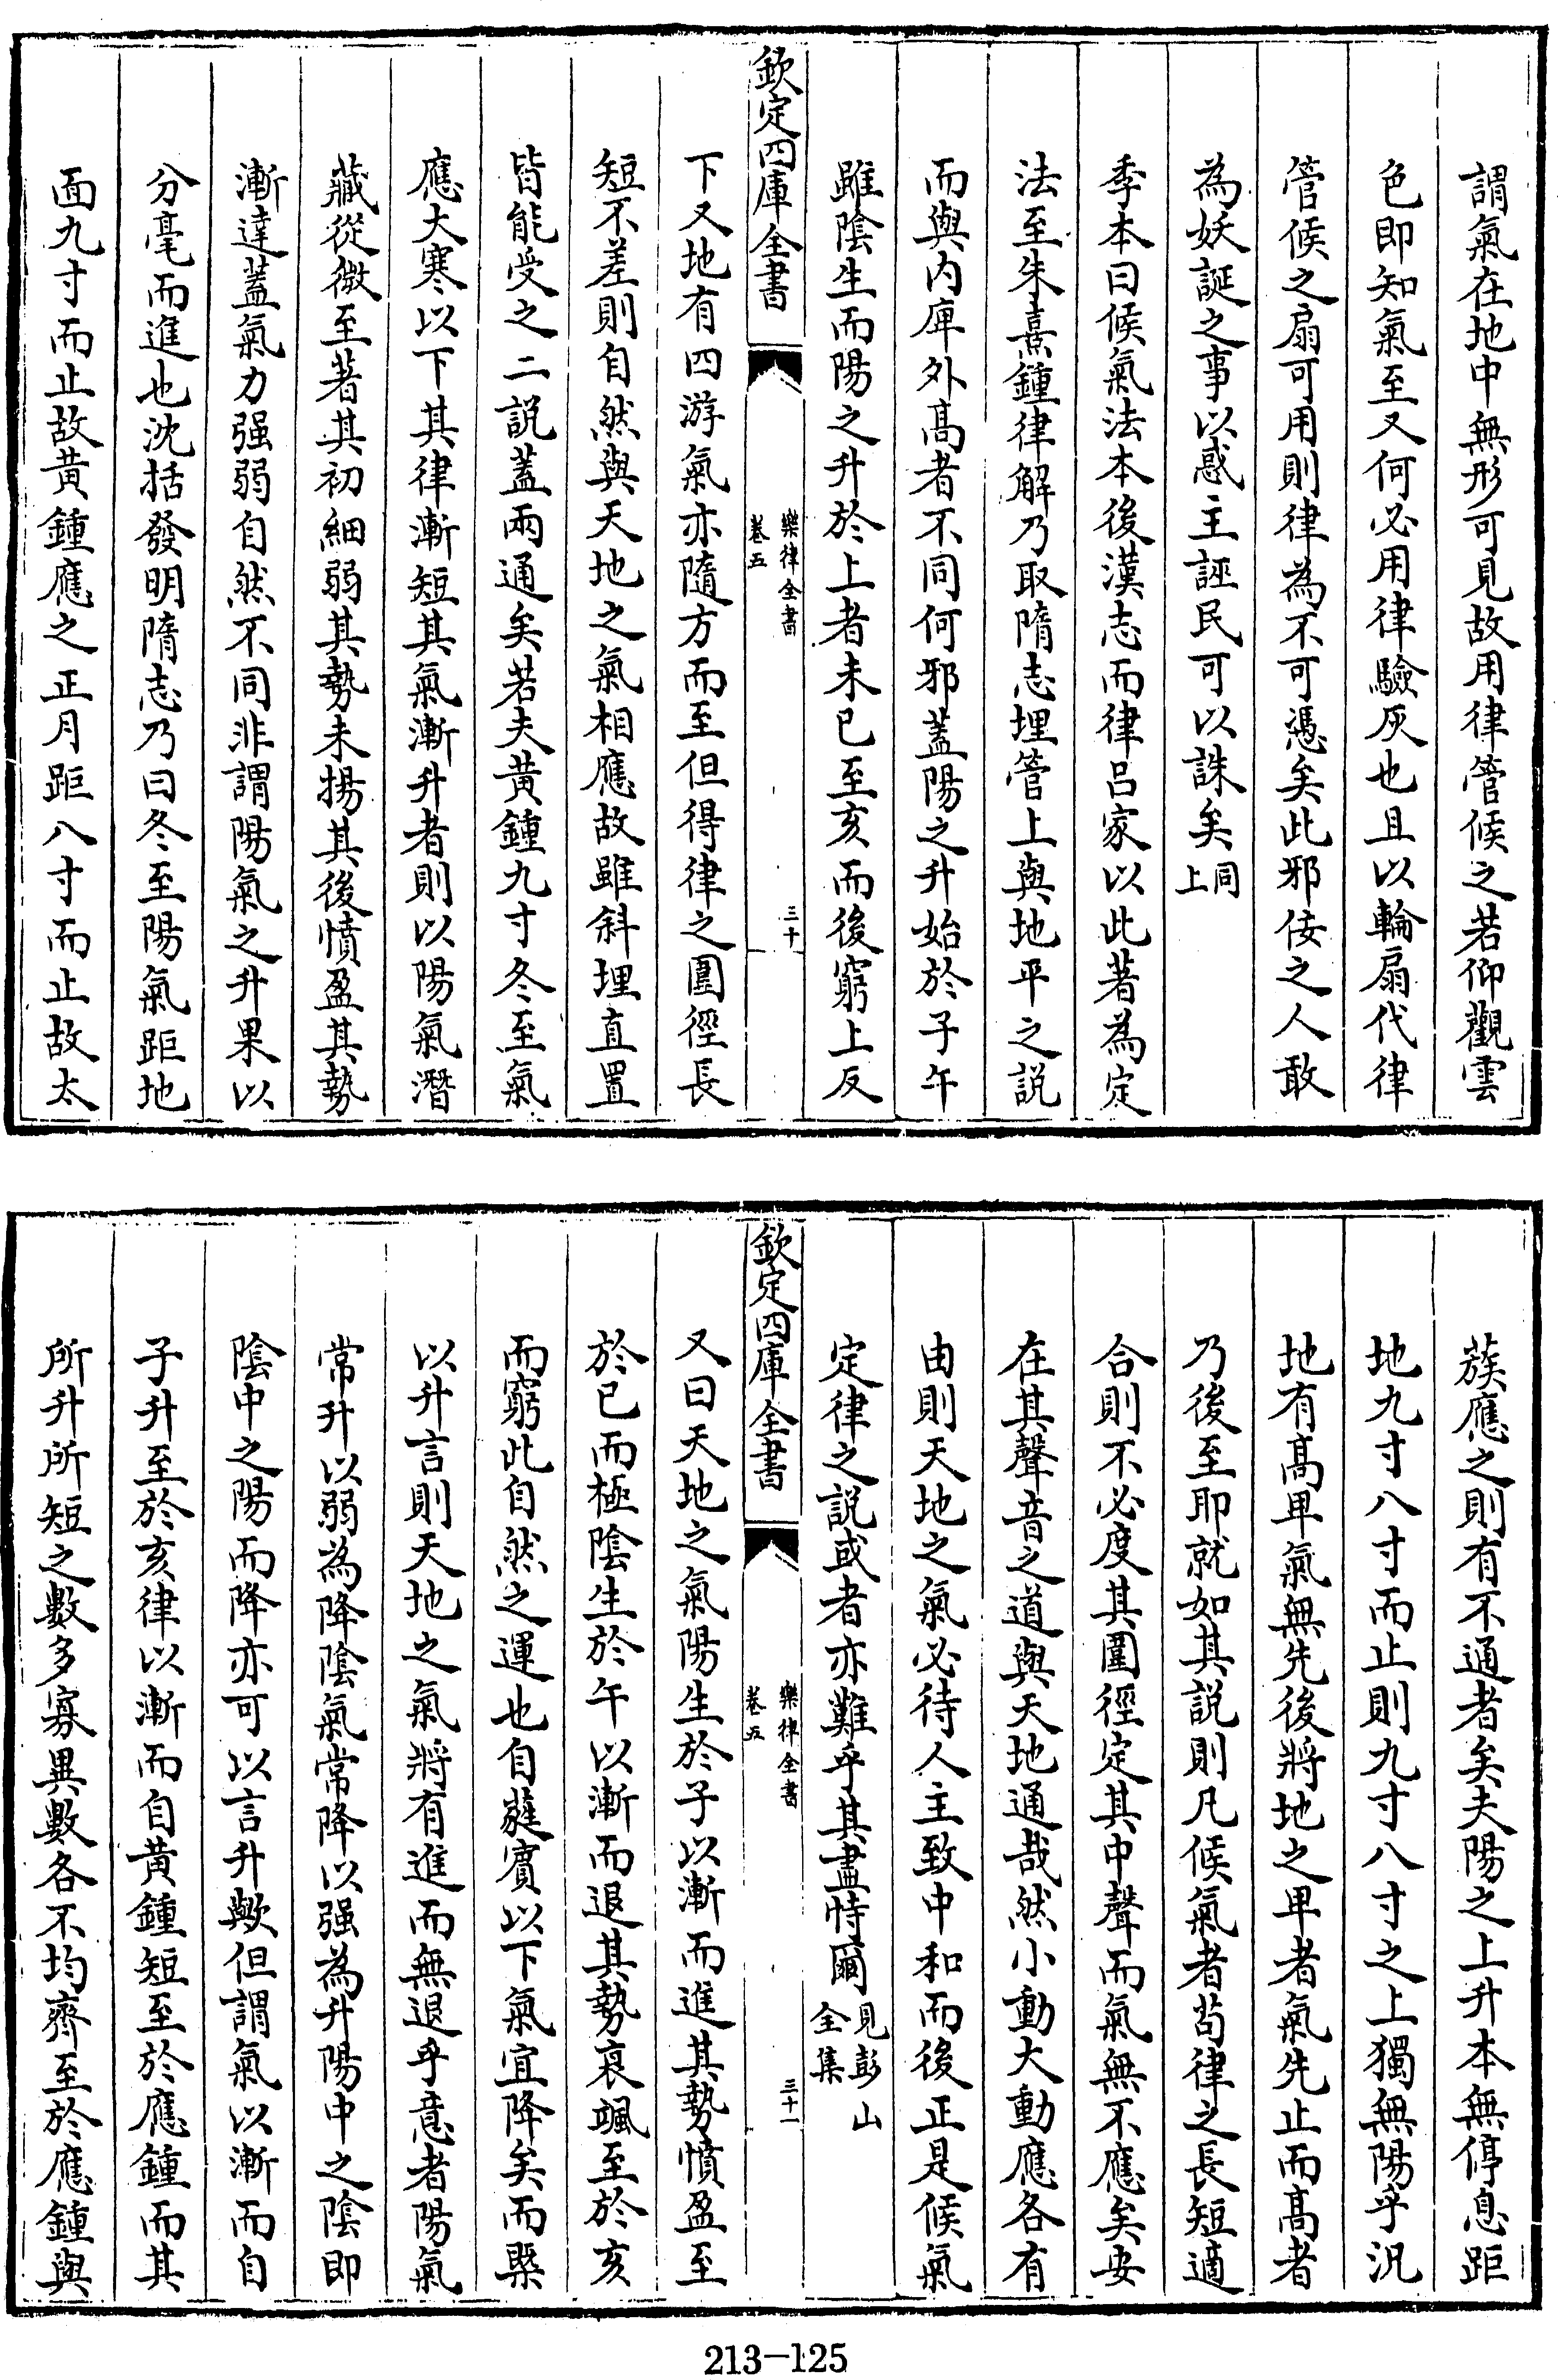 謂氣在地中無形可見故用律管候之若仰觀雲
色即知氣至又何必用律驗灰也且以輪扇代律
管候之扇可用則律為不可憑矣此邪佞之人敢
為妖誕之事以惑主誣民可以誅矣同上
季本曰候氣法本後漢志而律呂家以此著為定
法至朱熹鍾律解乃取隋志埋管上與地平之説
而與内庳外髙者不同何邪蓋陽之升始於子午
雖陰生而陽之升於上者未已至亥而後窮上反
欽定四庫全書
樂律全書
卷五
三十
下又地有四游氣亦隨方而至但得律之圍徑長
短不差則自然與天地之氣相應故雖斜埋直置
皆能受之二説蓋兩通矣若夫黄鍾九寸冬至氣
應大寒以下其律漸短其氣漸升者則以陽氣潛
藏從微至著其初細弱其勢未揚其後憤盈其勢
漸達蓋氣力强弱自然不同非謂陽氣之升果以
分毫而進也沈括發明隋志乃曰冬至陽氣距地
面九寸而止故黄鍾應之正月距八寸而止故太
蔟應之則有不通者矣夫陽之上升本無停息距
地九寸八寸而止則九寸八寸之上獨無陽乎況
地有髙卑氣無先後將地之卑者氣先止而髙者
乃後至耶就如其説則凡候氣者苟律之長短適
合則不必度其圍徑定其中聲而氣無不應矣安
在其聲音之道與天地通哉然小動大動應各有
由則天地之氣必待人主致中和而後正是候氣
定律之説或者亦難乎其盡恃爾見彭山全集
欽定四庫全書
樂律全書
卷五
三十一
又曰天地之氣陽生於子以漸而進其勢憤盈至
於已而極陰生於午以漸而退其勢衰颯至於亥
而窮此自然之運也自蕤賓以下氣宜降矣而槩
以升言則天地之氣將有進而無退乎意者陽氣
常升以弱為降陰氣常降以强為升陽中之陰即
陰中之陽而降亦可以言升歟但謂氣以漸而自
子升至於亥律以漸而自黄鍾短至於應鍾而其
所升所短之數多寡異數各不均齊至於應鍾與
213-125